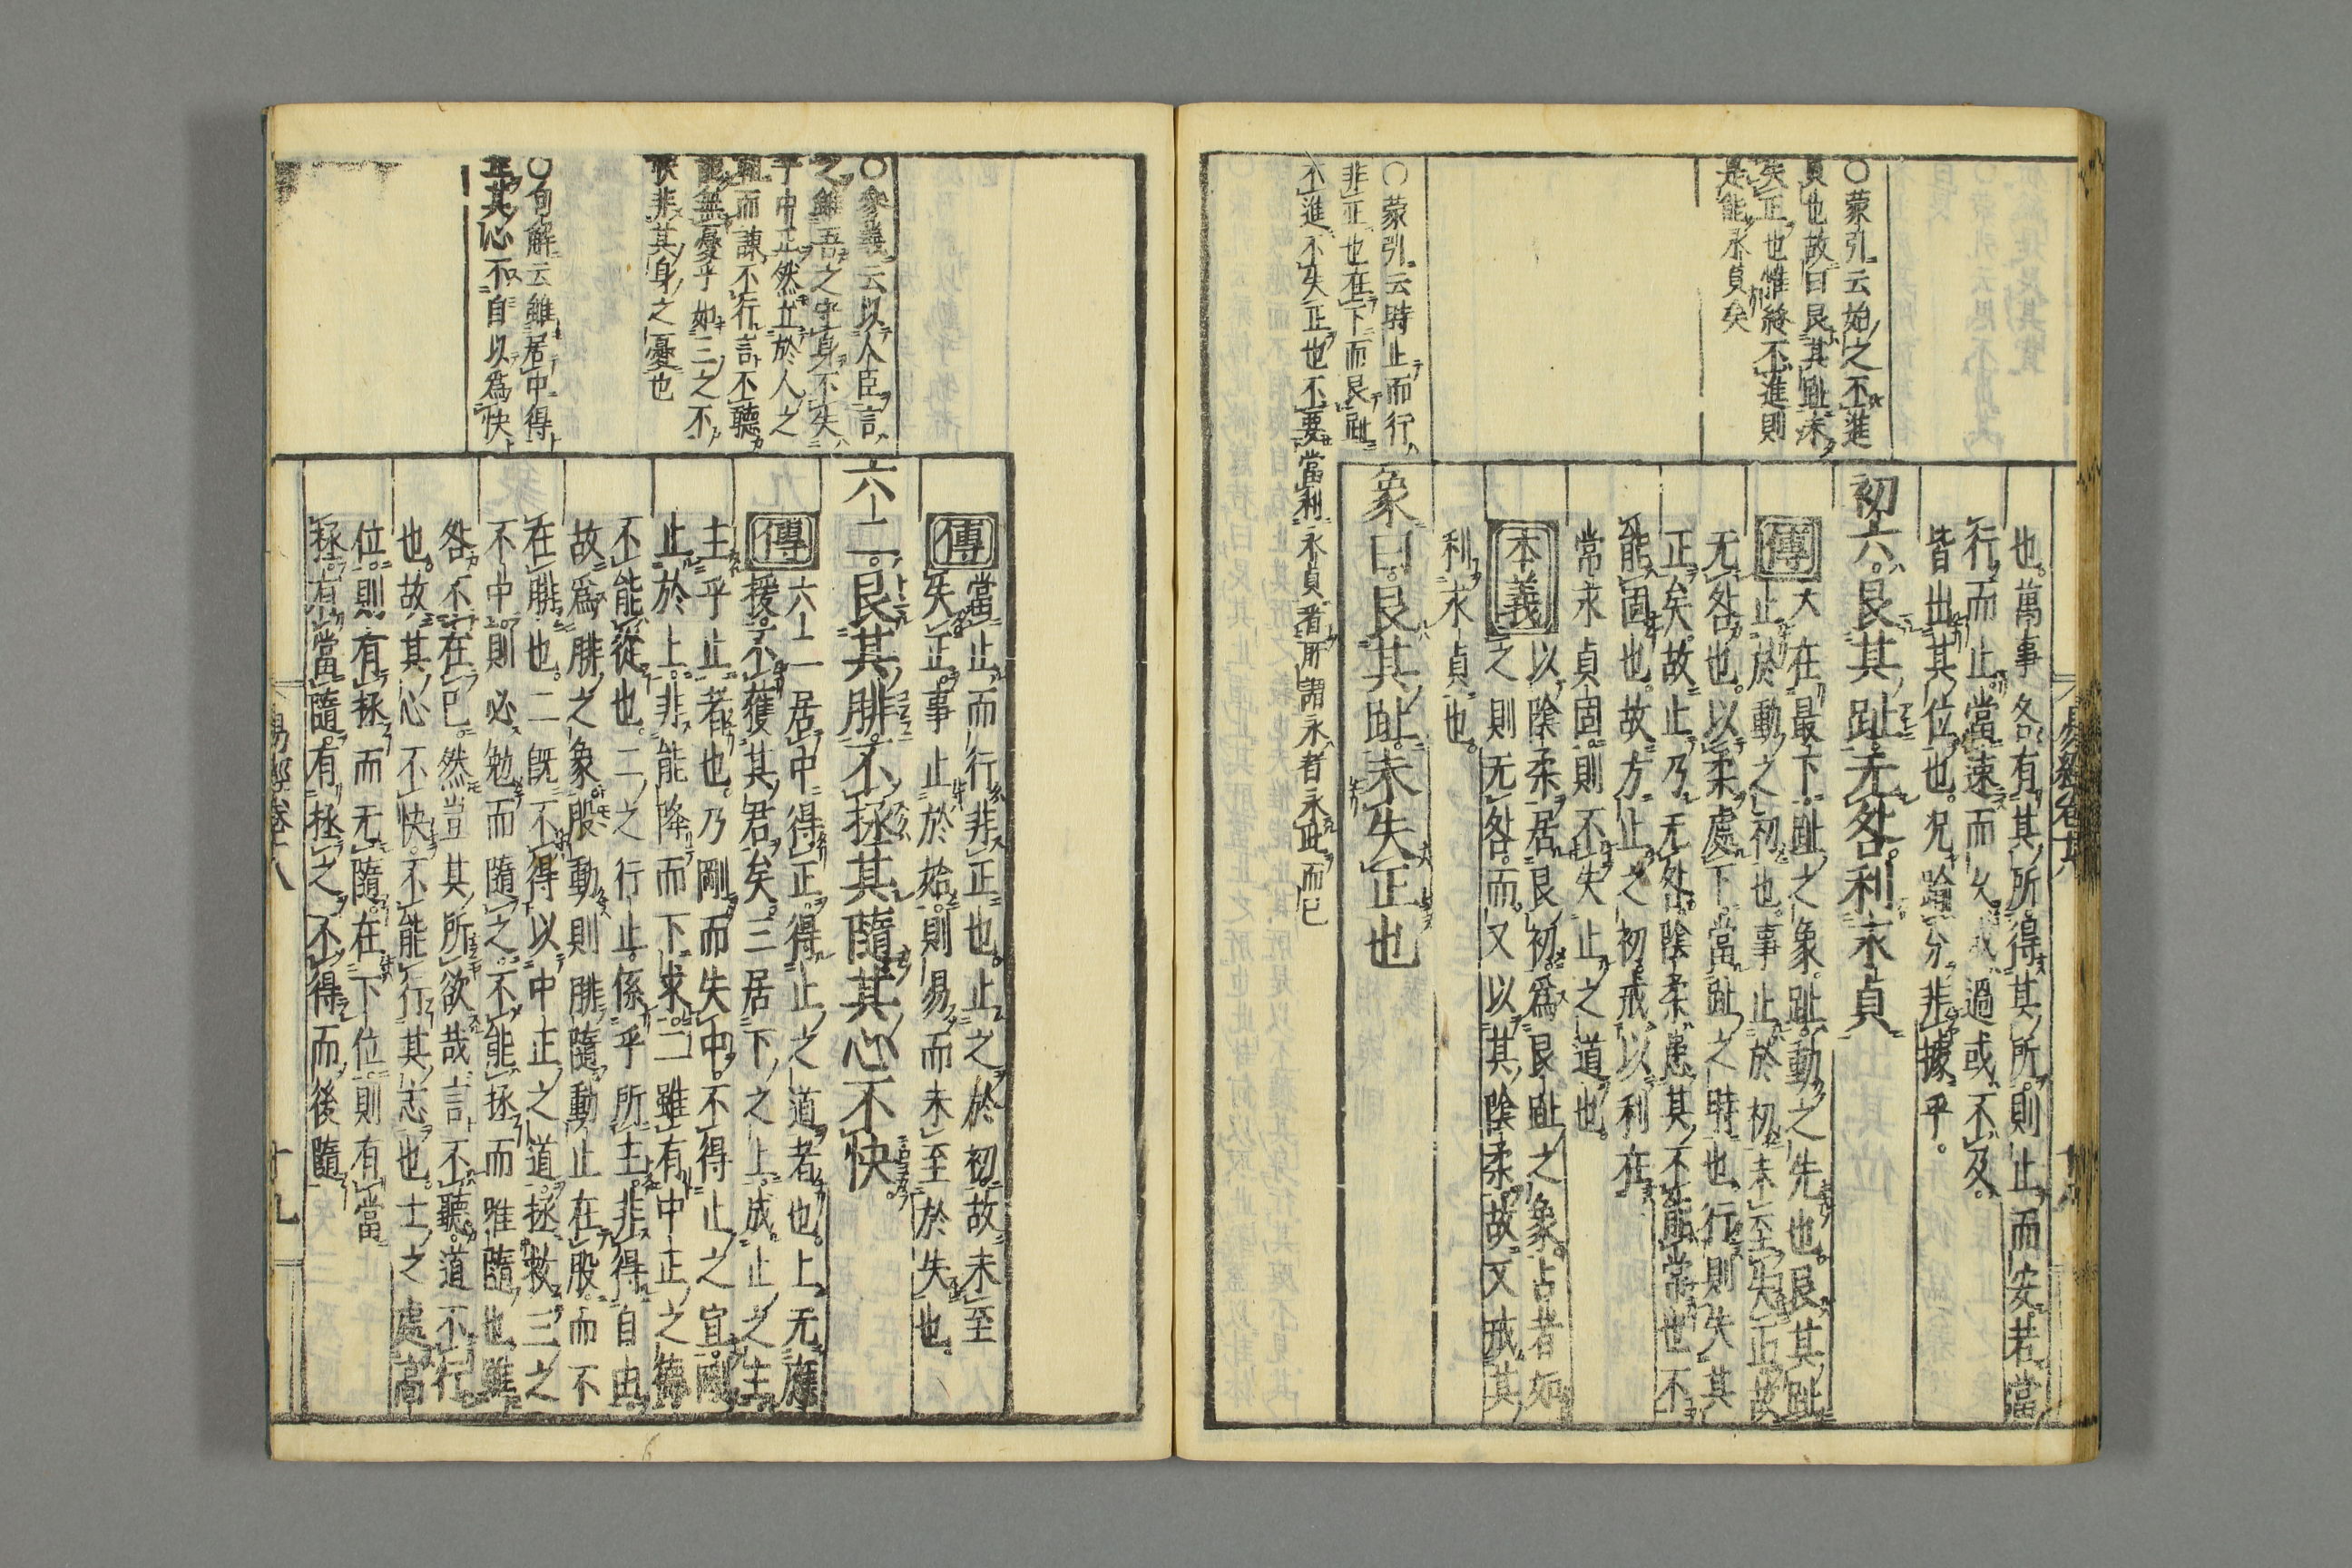 易經卷十八
也。萬事各有其所。得其所。則止而安。若當
行而止。當速而久。或過或不及。
皆出其位也。況踰分非據乎。
初六。艮其趾。无咎。利永貞
傳
六在最下。趾之象。趾。動之先也。艮其趾。
止於動之初也。事止於初。未至失正。故
无咎也。以柔處下。當趾之時也。行則失其
正矣。故止乃无咎。陰柔患其不能常也。不
能固也。故方止之初。戒以利在
常永貞固。則不失止之道也。
本義
以陰柔居艮初。爲艮趾之象。占者如
之則无咎。而又以其陰柔。故又戒其
利永貞也。
象曰。艮其趾。未失正也
〇蒙引云始之不進
貞也故曰艮其趾未
失正也惟終不進則
是能永貞矣
〇蒙引云時止而行
非正也在下而艮趾
不進不失正也不要當利永貞看所謂永者永此而已
傳
當止而行。非正也。止之於初。故未至
失正。事止於始。則易而未至於失也。
六二。艮其腓。不拯其隨。其心不快。
傳
六二居中得正。得止之道者也。上无應
援。不獲其君矣。三居下之上。成止之主。
主乎止者也。乃剛而失中。不得止之宜。剛
止於上。非能降而下求。二雖有中正之德。
不能從也。二之行止。係乎所主。非得自由。
故爲腓之象。股動則腓隨。動止在股。而不
在腓也。二既不得以中正之道。拯救三之
不中。則必勉而隨之。不能拯而唯隨也。雖
咎不在已。然豈其所欲哉。言不聽。道不行
也。故其心不快。不能行其志也。士之處高
位。則有拯而无隨。在下位。則有當
拯。有當隨。有拯之不得而後隨
〇參義云以人臣言
之雖吾之守身不失
乎中正然立於人之
朝而諫不行言不聽
能無憂乎如三之不
快非其身之憂也
〇句解云雖居中得
正其心不自以爲快
易經卷十八
十九